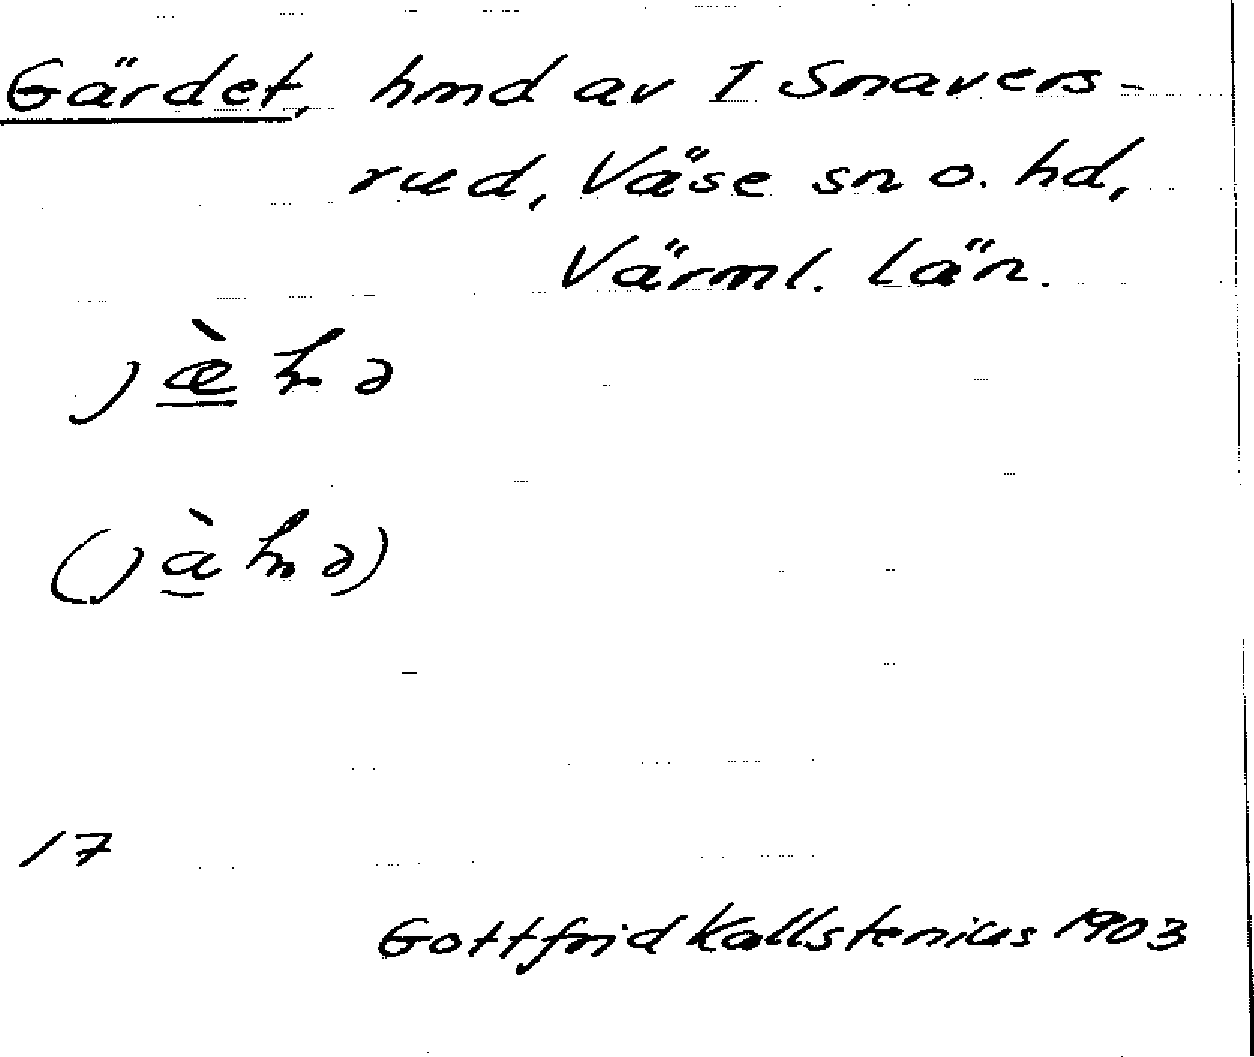 Gärdet, hmd av 1 Snavers-
rud, Väse sn o. hd,
Värml. län.
17
Gottfrid Kallstenius 1903